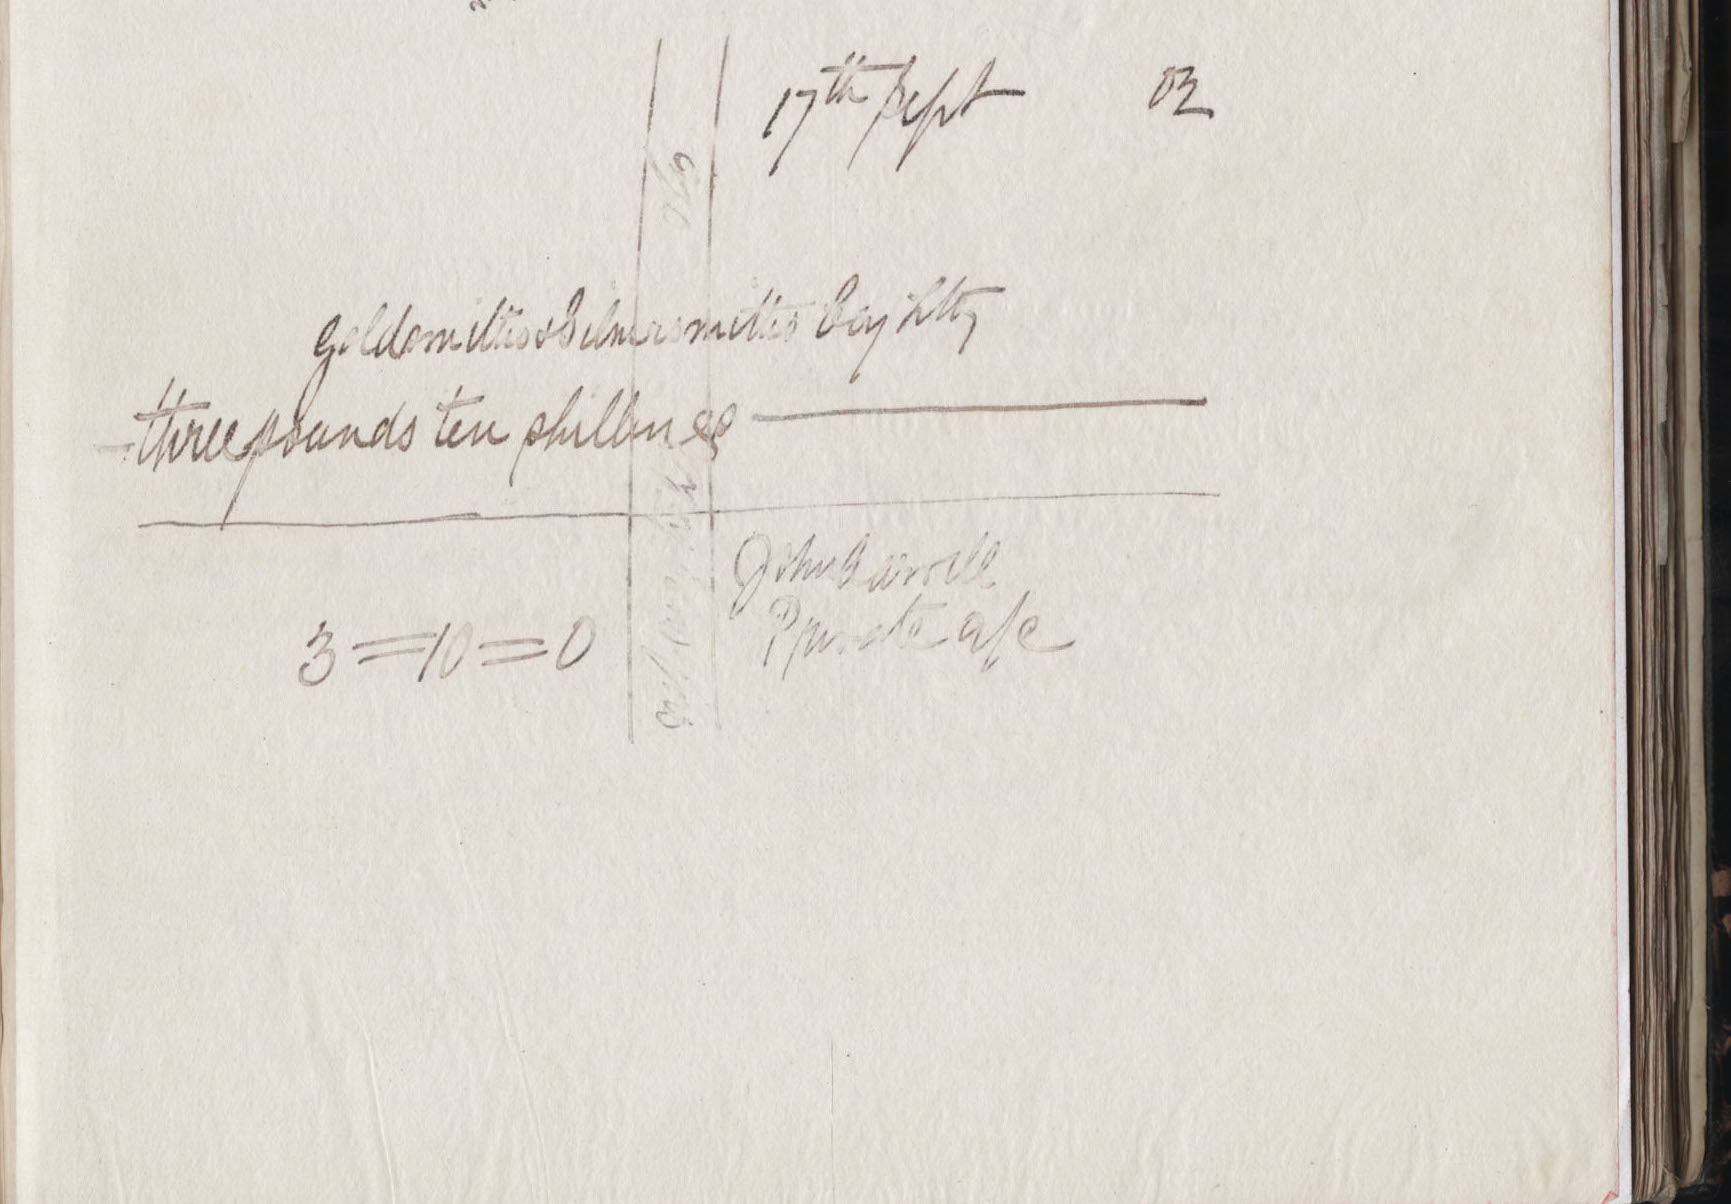 17th Sept 02
Goldsmiths & Silversmiths Coy Ltd
three pounds ten shillings
John Carroll
3=10=0
Private a/c